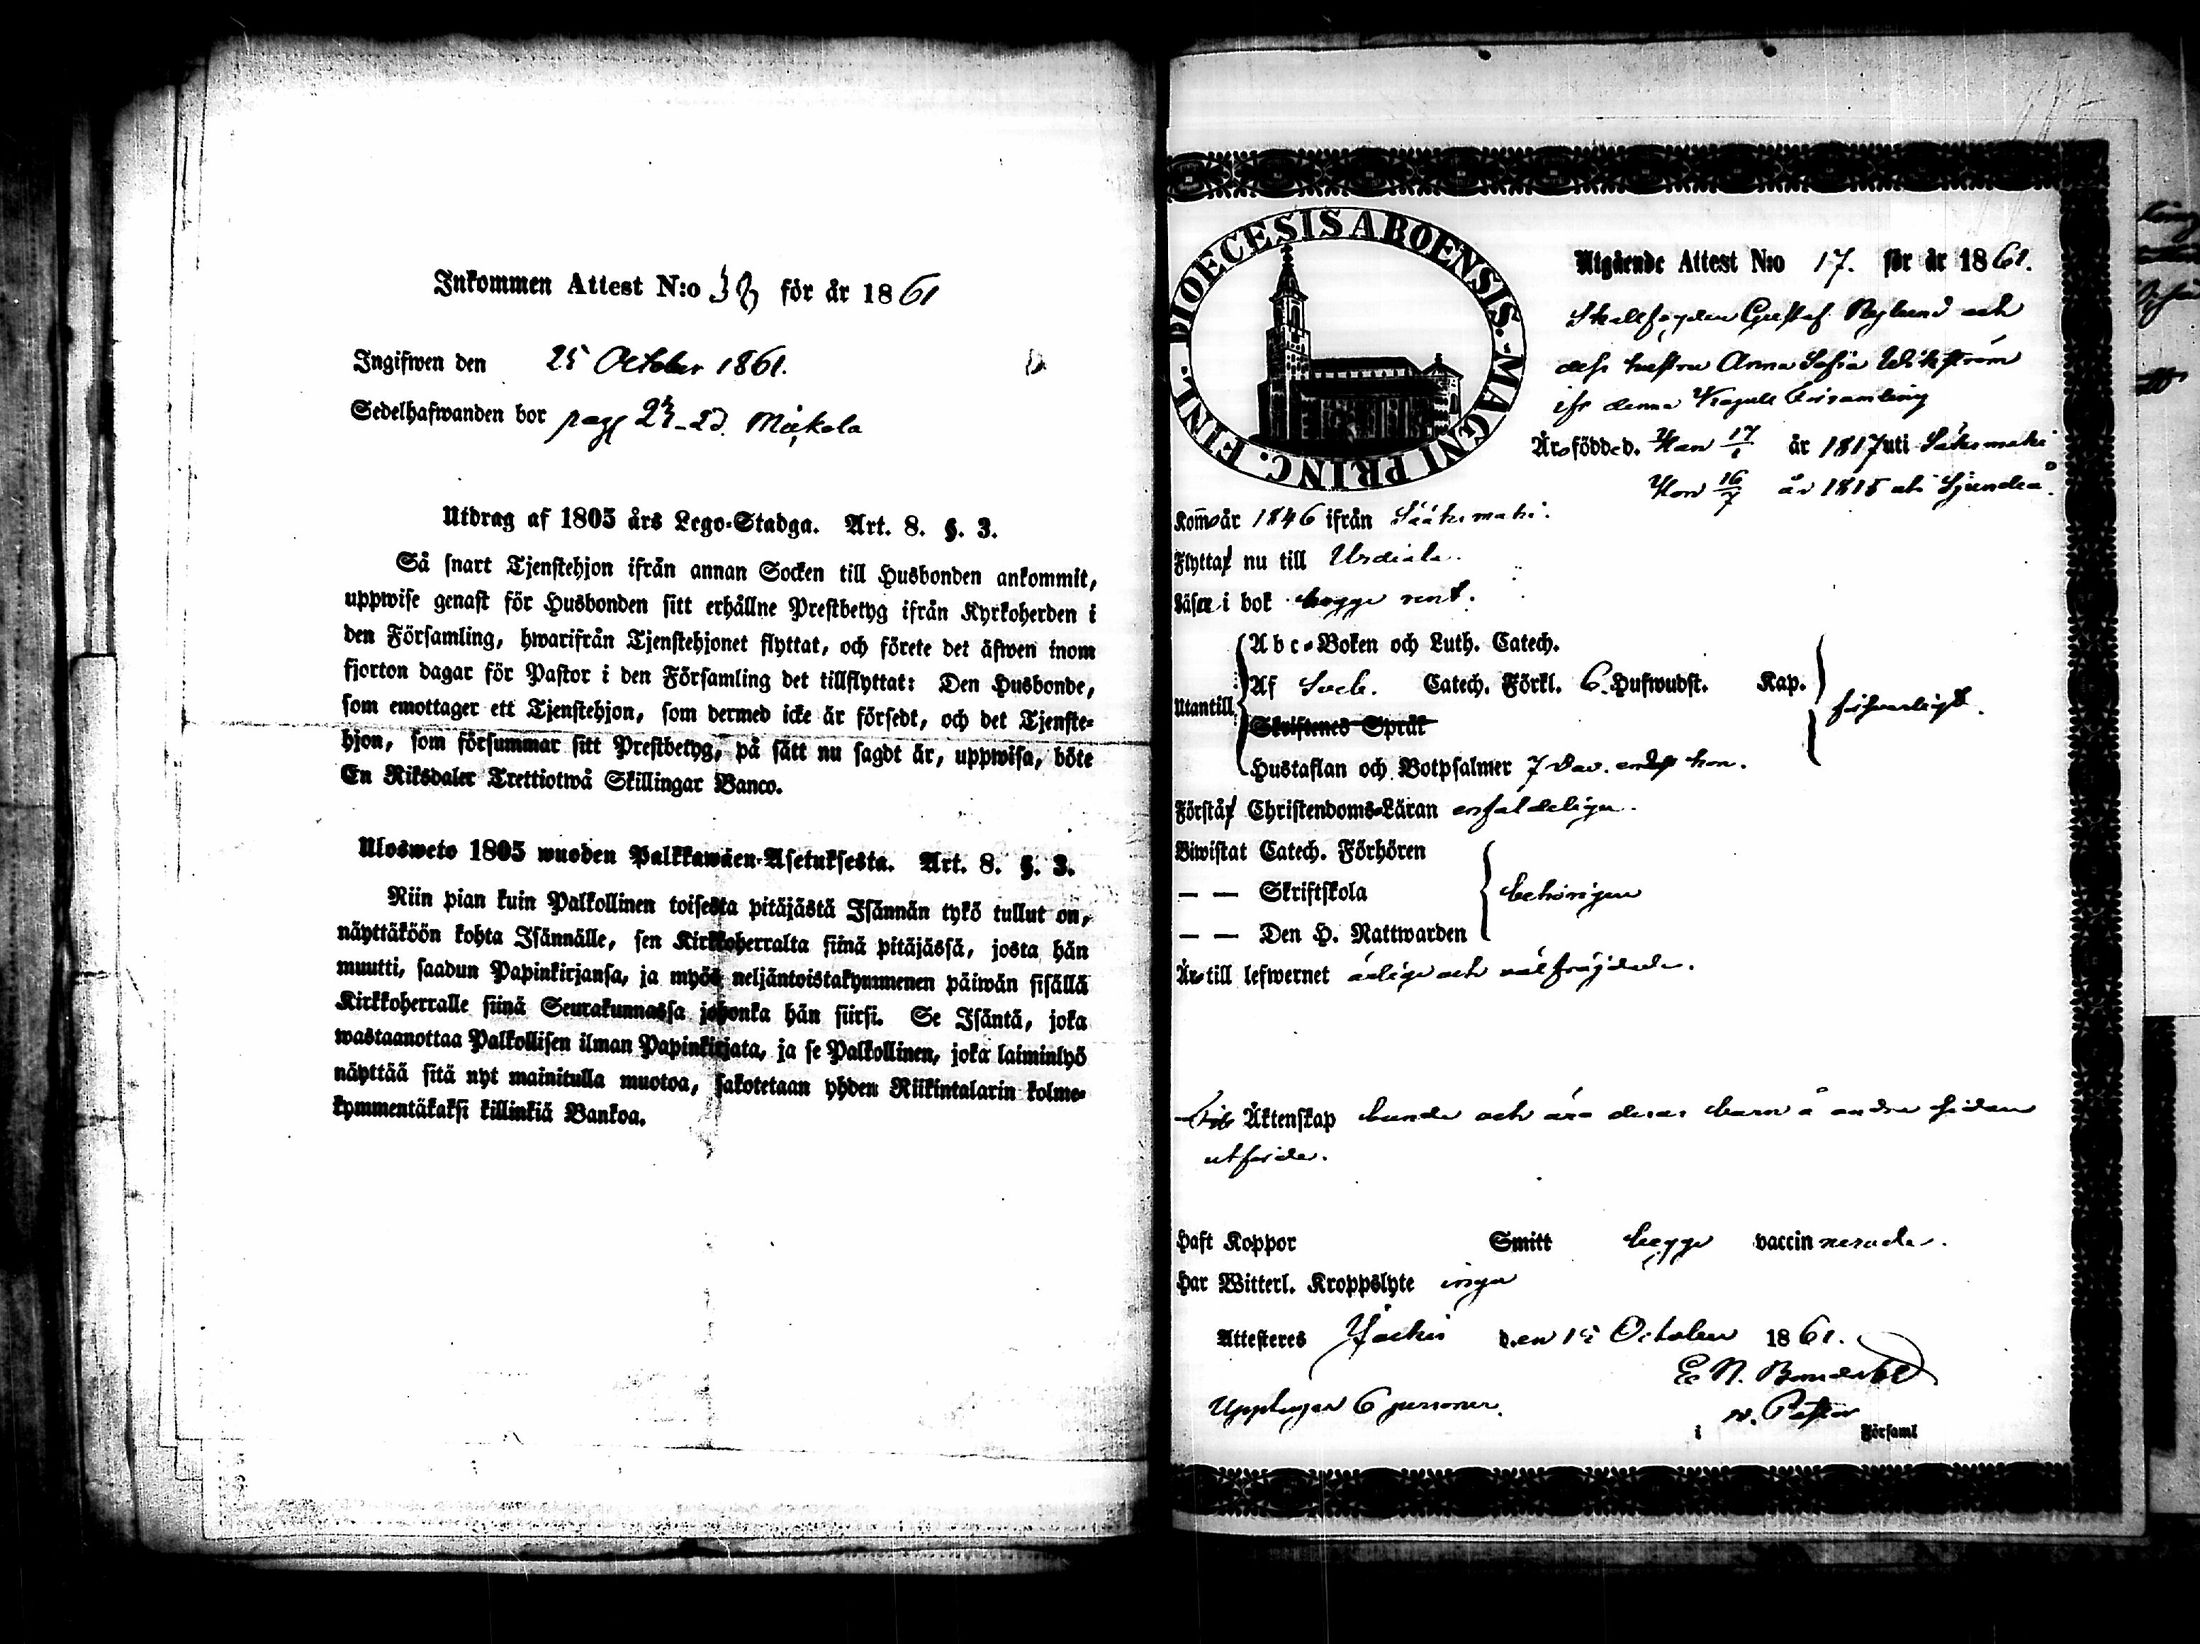 Inkommen Attest N:o 38 för år 1861
Ingifwen den 25 October 1861.
Sedelhafwanden bor pag
Utdrag af 1805 års Lego-Stadga. Art. 8. §. 3.
Så snart Tjenstehjon ifrån annan Socken till Husbonden ankommit,
uppwise genast för Husbonden sitt erhållne Prestbetyg ifrån Kyrkoherden i
den Församling, hwarifrån Tjenstehjonet flyttat, och förete det äfwen inom
fjorton dagar för Pastor i den Församling det tillflyttat: Den Husbonde,
som emottager ett Tjenstehjon, som dermed icke är försedt, och det Tjenste-
hjon, som försummar sitt Prestbetyg, på sätt nu sagdt är, uppwisa, böte
En Riksdaler Trettiotwå Skillingar Banco.
Ulosweto 1805 wuoden Palkkawäen-Asetuksesta. Art. 8. §. 3.
Niin pian kuin Palkollinen toisesta pitäjästä Isännän tykö tullut on,
näyttäköön kohta Isännälle, sen Kirkkoherralta siinä pitäjässä, josta hän
muutti, saadun Papinkirjansa, ja myös neljäntoistakymmenen päiwän sisällä
Kirkkoherralle siinä Seurakunnassa johonka hän siirsi. Se Isäntä, joka
wastaanottaa Palkollisen ilman Papinkirjata, ja se Palkollinen, joka laiminlyö
näyttää sitä nyt mainitulla muotoa, sakotetaan yhden Riikintalarin kolme-
kymmentäkaksi killinkiä Bankoa.
DIOECESIS ABOENSIS. MAGNI PRINC. FINL.
Utgående Attest N:o 17. för år 1861.
Skallfogden Gustaf Nylund och
dess hustru Anna Sofia Wikström
ifr denna Kapell Församling
Äro födde d. Han 17/1 år 1817 uti Sääksmäki
Hon 16/7 år 1815 uti Sjundeå.
Kommo år 1846 ifrån Sääksmäki.
Flytta nu till Urdiala.
Läsa i bok begge rent.
Utantill
Abc-Boken och Luth. Catech.
Af Sveb. Catech. Förkl. 6. Hufwudst. Kap.
Skriftenes Språk
försvarligt.
Hustaflan och Botpsalmer 7 Dav. endast hon.
Förstå Christendoms-Läran enfaldeligen.
Biwistat Catech. Förhören
— — Skriftskola
behörigen
— — Den H. Nattwarden
Äro till lefwernet ärlige och välfrägdade.
Till Äktenskap bundne och äro deras barn å andra sidan
utförda.
Haft Koppor Smitt begge vaccinerade.
Har Witterl. Kroppslyte inga
Attesteras Jockis den 15 October 1861.
E N.
v. Pastor
Upptager 6 personer.
i Församl